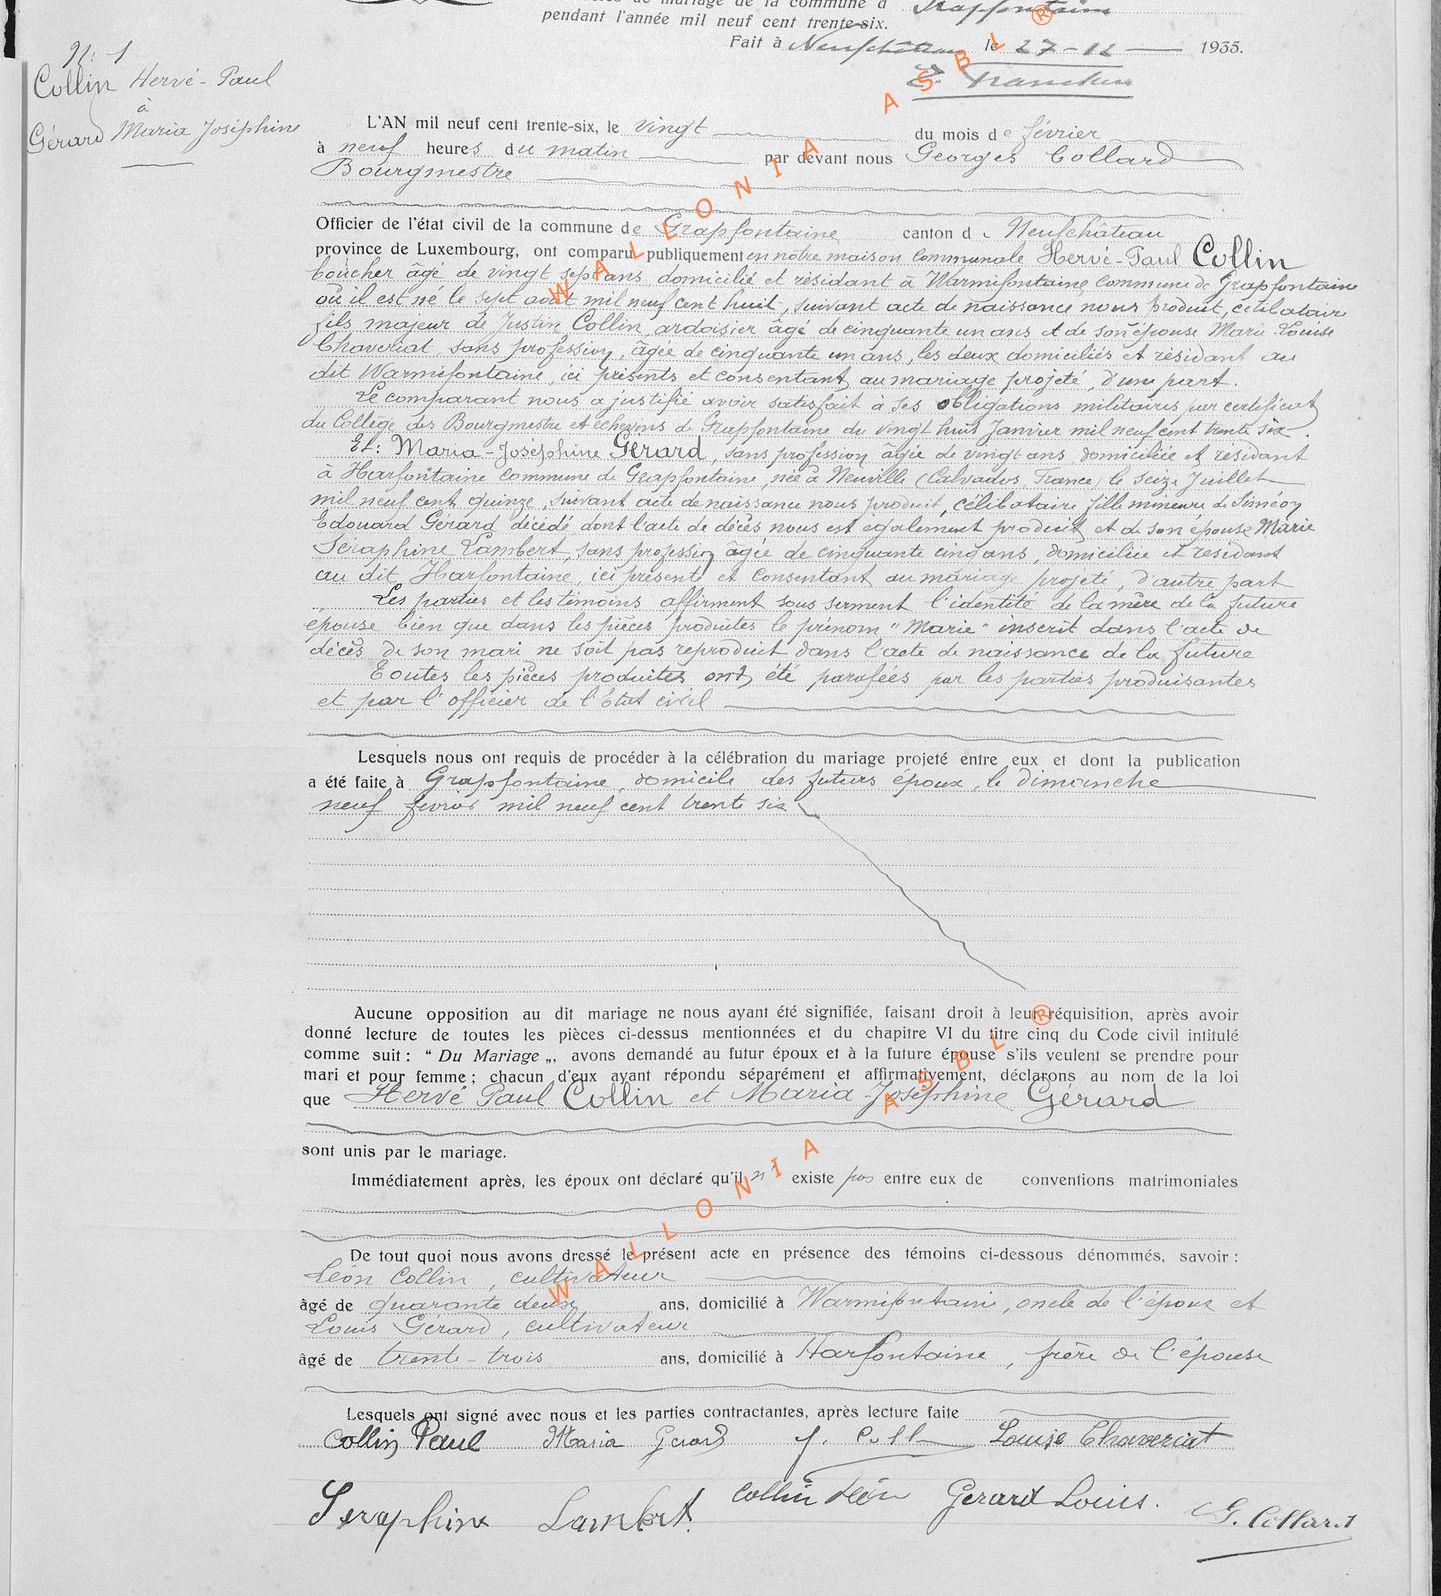 de mariage de la commune d Grapfontaine
pendant l'année mil neuf cent trente-six.
Fait à Neufchâteau le 27-12 1935.
N: 1
Collin Hervé-Paul
à
Gérard Maria Joséphine
L'AN mil neuf cent trente-six, le vingt du mois de février
à neuf heures du matin par devant nous Georges Collard
Bourgmestre
Officier de l'état civil de la commune de Grapfontaine canton de Neufchâteau
province de Luxembourg, ont comparu publiquement en notre maison communale Hervé-Paul Collin
boucher âgé de vingt sept ans domicilié et résidant à Warmifontaine commune de Grapfontaine
où il est né le sept août mil neuf cent huit, suivant acte de naissance nous produit, célibataire
fils majeur de Justin Collin, ardoisier âgé de cinquante un ans et de son épouse Marie-Louise
Chaveriat, sans profession, âgée de cinquante un ans, les deux domiciliés et résidant au
dit Warmifontaine, ici présents et consentant au mariage projeté, d'une part.
Le comparant nous a justifié avoir satisfait à ses obligations militaires par certificat
du Collège des Bourgmestre et échevins de Grapfontaine du vingt huit Janvier mil neuf cent trente six.
Et: Maria-Joséphine Gérard, sans profession âgée de vingt ans, domiciliée et résidant
à Harfontaine commune de Grapfontaine, née à Neuville (Calvados, France) le seize Juillet
mil neuf cent quinze, suivant acte de naissance nous produit, célibataire fille mineure de Siméon
Edouard Gérard décédé dont l'acte de décès nous est également produit et de son épouse Marie
Séraphine Lambert, sans profession âgée de cinquante cinq ans, domiciliée et résidant
au dit Harfontaine, ici présent et consentant au mariage projeté, d'autre part
Les parties et les témoins affirment sous serment l'identité de la mère de la future
épouse bien que dans les pièces produites le prénom "Marie" inscrit dans l'acte de
décès de son mari ne soit pas reproduit dans l'acte de naissance de la future
Toutes les pièces produites ont été parafées par les parties produisantes
et par l'officier de l'Etat civil
Lesquels nous ont requis de procéder à la célébration du mariage projeté entre eux et dont la publication
a été faite à Grapfontaine, domicile des futurs époux, le dimanche
neuf février mil neuf cent trente six
Aucune opposition au dit mariage ne nous ayant été signifiée, faisant droit à leur réquisition, après avoir
donné lecture de toutes les pièces ci-dessus mentionnées et du chapitre VI du titre cinq du Code civil intitulé
comme suit : " Du Mariage „, avons demandé au futur époux et à la future épouse s'ils veulent se prendre pour
mari et pour femme ; chacun d'eux ayant répondu séparément et affirmativement, déclarons au nom de la loi
que Hervé Paul Collin et Maria-Joséphine Gérard
sont unis par le mariage.
Immédiatement après, les époux ont déclaré qu'il n' existe pas entre eux de conventions matrimoniales
De tout quoi nous avons dressé le présent acte en présence des témoins ci-dessous dénommés, savoir :
Léon Collin, cultivateur
âgé de quarante deux ans, domicilié à Warmifontaine, oncle de l'époux et
Louis Gérard, cultivateur
âgé de trente-trois ans, domicilié à Harfontaine, frère de l'épouse
Lesquels ont signé avec nous et les parties contractantes, après lecture faite
Collin Paul Maria Gerard J. Coll Louise Chaveriat
Seraphine Lambert. Collin Léon Gerard Louis. G. Collard
WALLONIA ASBL ®
WALLONIA ASBL ®